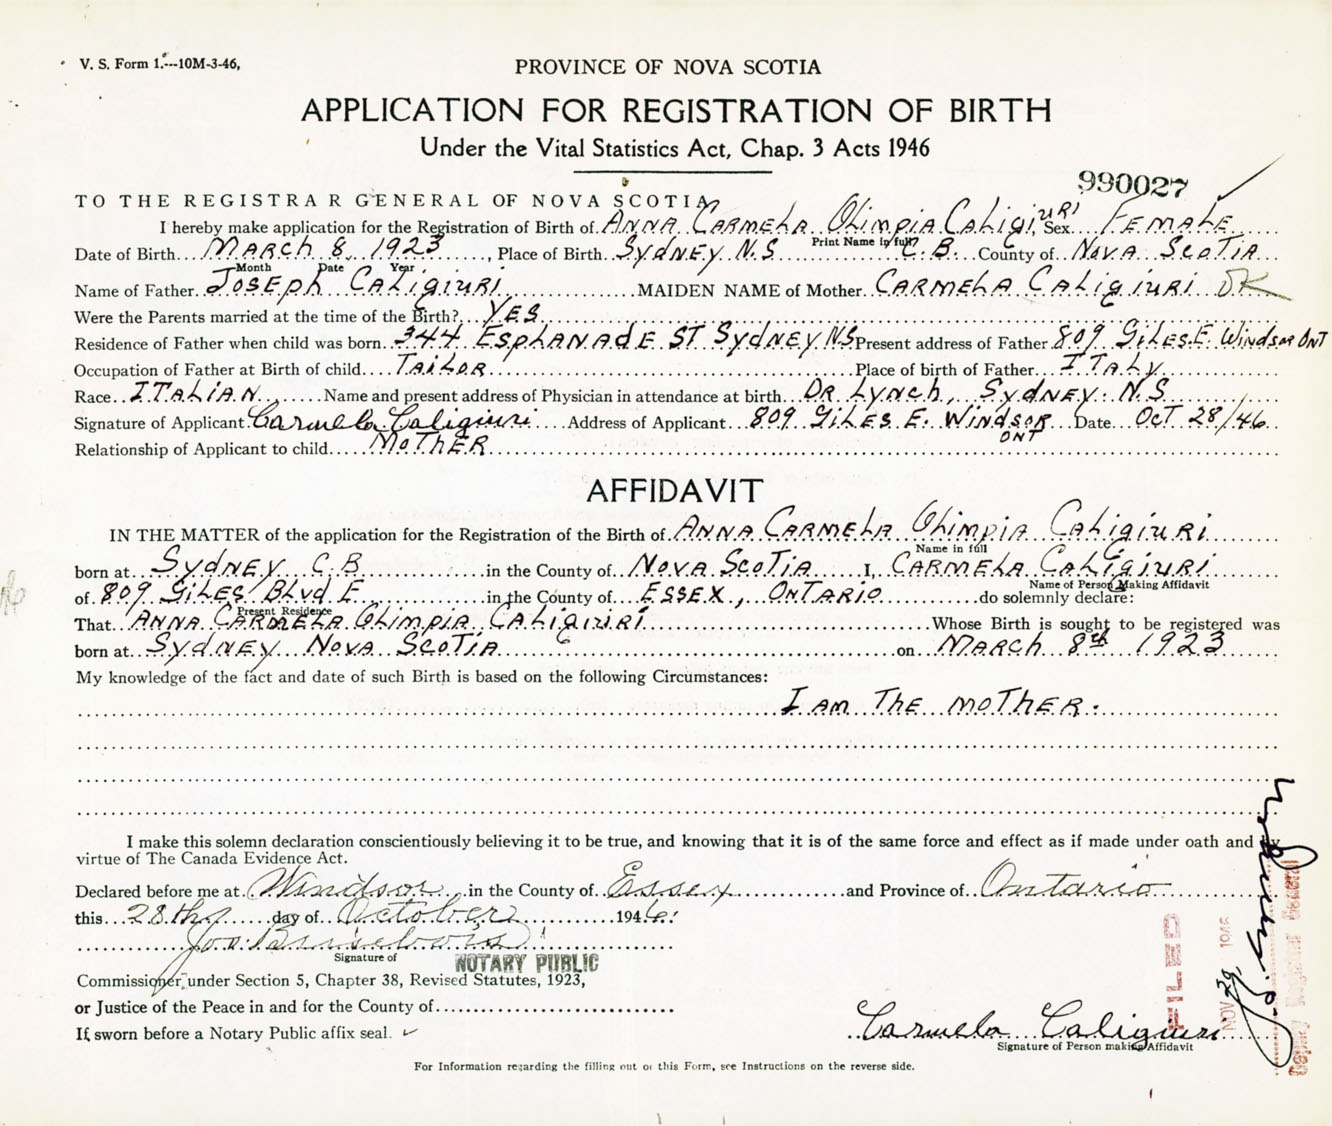 V. S. Form 1.---10M-3-46,
PROVINCE OF NOVA SCOTIA
APPLICATION FOR REGISTRATION OF BIRTH
Under the Vital Statistics Act, Chap. 3 Acts 1946
990027
TO THE REGISTRAR GENERAL OF NOVA SCOTIA
I hereby make application for the Registration of Birth of ANNA CARMELA OLIMPIA CALIGIURI, Sex FEMALE
Print Name in full
Date of Birth MARCH 8, 1923, Place of Birth SYDNEY N.S C.B. County of NOVA SCOTIA
Month Date Year
Name of Father JOSEPH CALIGIURI MAIDEN NAME of Mother CARMELA CALIGIURI OK
Were the Parents married at the time of the Birth? YES
Residence of Father when child was born 344 ESPLANADE ST SYDNEY N.S Present address of Father 809 GILES E. WINDSOR ONT
Occupation of Father at Birth of child TAILOR Place of birth of Father ITALY
Race ITALIAN Name and present address of Physician in attendance at birth DR LYNCH, SYDNEY N.S
Signature of Applicant Carmela Caligiuri Address of Applicant 809 GILES E. WINDSOR ONT Date OCT 28/46
Relationship of Applicant to child MOTHER
AFFIDAVIT
IN THE MATTER of the application for the Registration of the Birth of ANNA CARMELA OLIMPIA CALIGIURI
Name in full
born at SYDNEY C.B in the County of NOVA SCOTIA I, CARMELA CALIGIURI
Name of Person Making Affidavit
of 809 GILES BLVD E in the County of ESSEX, ONTARIO do solemnly declare:
Present Residence
That ANNA CARMELA OLIMPIA CALIGIURI Whose Birth is sought to be registered was
born at SYDNEY NOVA SCOTIA on MARCH 8th 1923
My knowledge of the fact and date of such Birth is based on the following Circumstances:
I AM THE MOTHER.
I make this solemn declaration conscientiously believing it to be true, and knowing that it is of the same force and effect as if made under oath and by
virtue of The Canada Evidence Act.
Declared before me at Windsor in the County of Essex and Province of Ontario
this 28th day of October 1946.
Signature of
NOTARY PUBLIC
Commissioner under Section 5, Chapter 38, Revised Statutes, 1923,
or Justice of the Peace in and for the County of
If sworn before a Notary Public affix seal.
Carmela Caligiuri
Signature of Person making Affidavit
FILED
NOV 29 1946
Deputy Registrar General
For Information regarding the filling out of this Form, see Instructions on the reverse side.